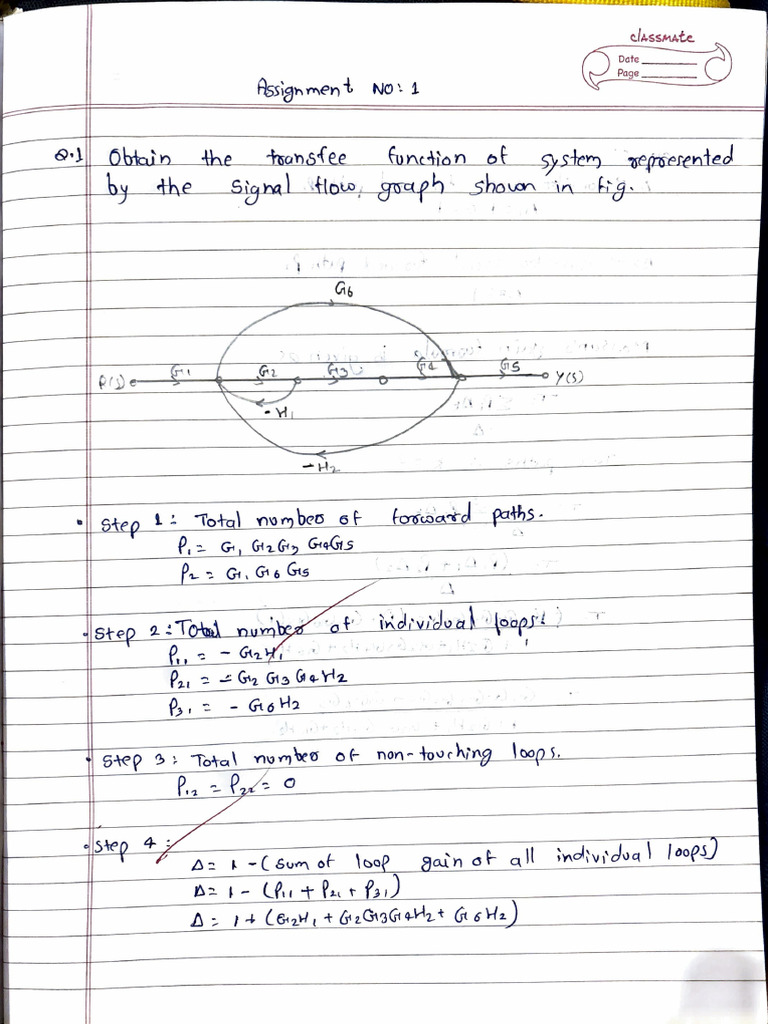 classmate
Date
Page
Assignment NO: 1
Q.1 Obtain the transfee function of system represented
by the signal flow graph shown in fig.
G6
R(s) G1 G2 G3 G4 G5 Y(s)
-H1
-H2
• Step 1: Total number of forward paths.
P1 = G1 G2G3 G4G5
P2 = G1 G6 G5
• Step 2: Total number of individual loops:
P11 = - G2H1
P21 = - G2 G3 G4 H2
P31 = - G6 H2
• Step 3: Total number of non-touching loops.
P12 = P22 = 0
• Step 4:
Δ = 1 - (sum of loop gain of all individual loops)
Δ = 1 - (P11 + P21 + P31)
Δ = 1 + (G2H1 + G2G3G4H2 + G6H2)